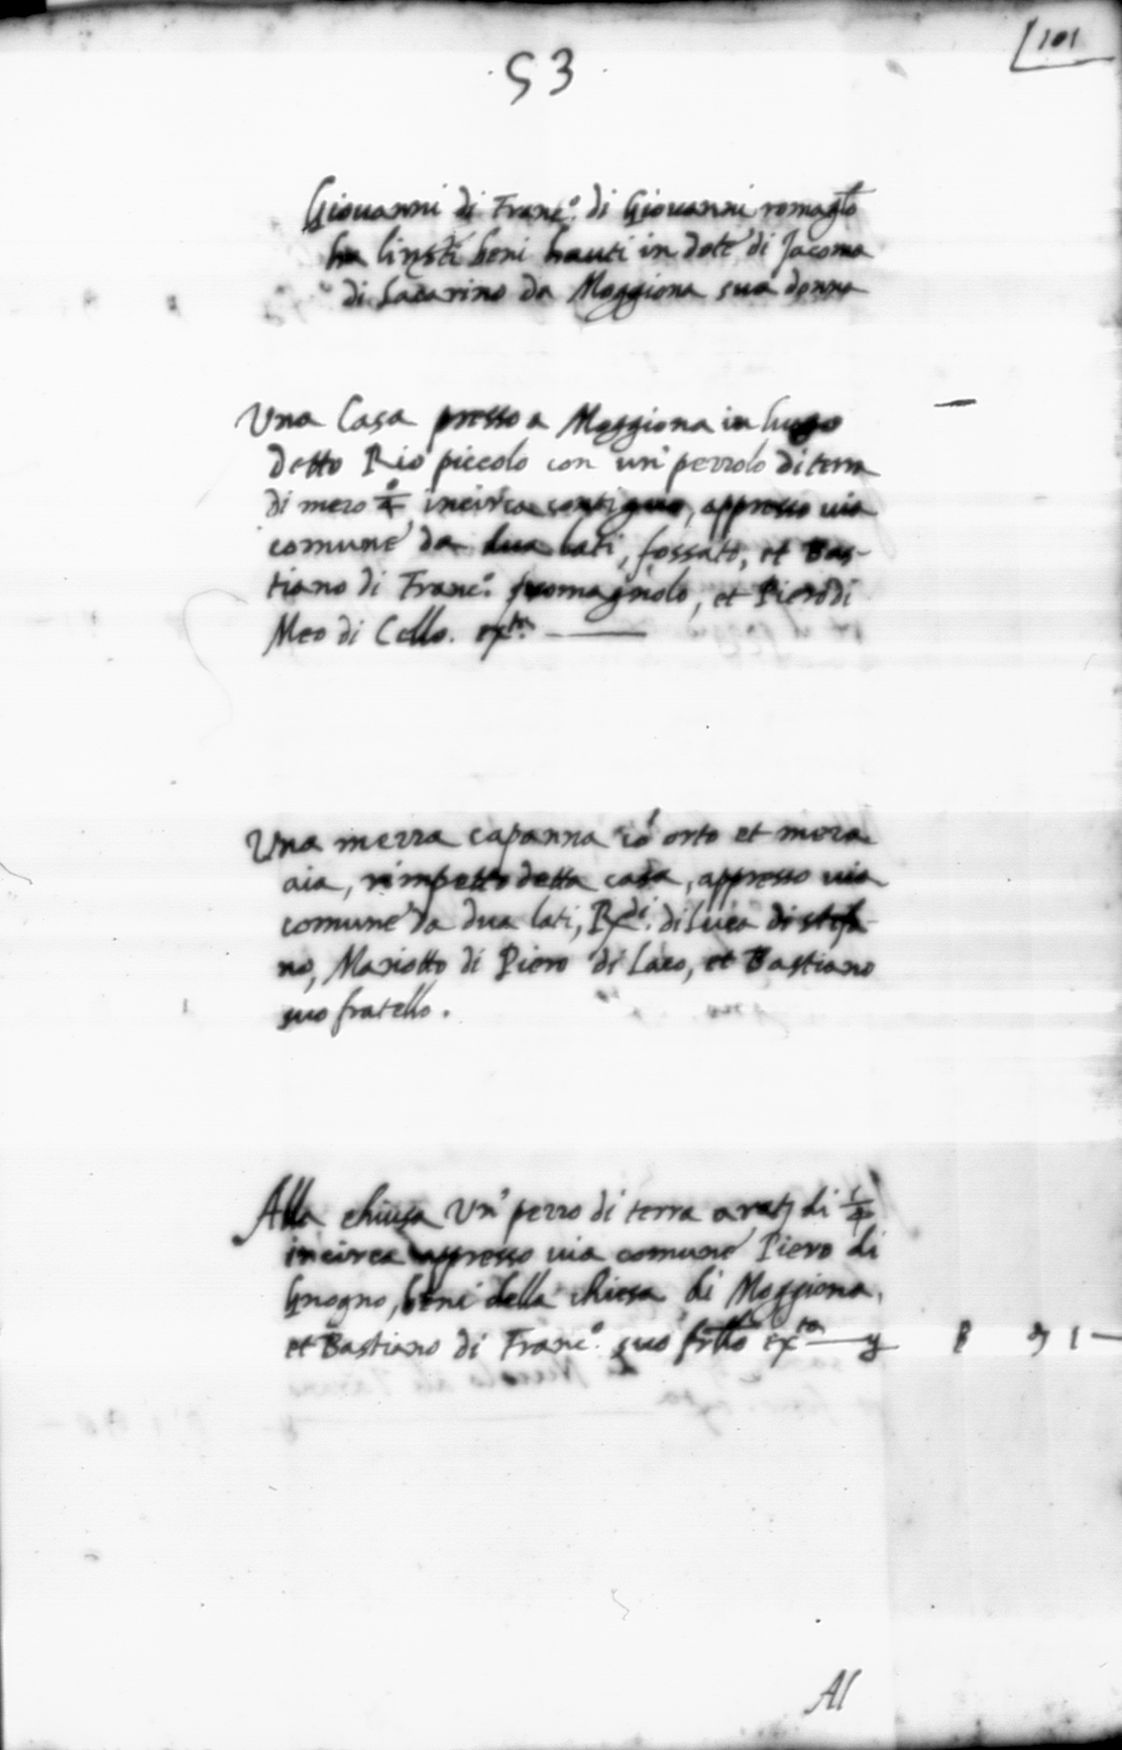 101
53
Giovanni di Franc.o di Giovanni romag.lo
ha l'infr.ti beni hauti in dote di Jacoma
di Lazarino da Moggiona sua donna
Una Casa presso a Moggiona in luogo
detto Rio piccolo con un pezzolo di terra
di mezo incirca contiguo, appresso via
comune da dua lati, fossato, et Bas-
tiano di Franc.o romagnolo, et Piero di
Meo di Cello. ex.ta
Una mezza capanna co orto et meza
aia, rimpetto detta casa, appresso via
comune da dua lati, di Luca di Stefa-
no, Mariotto di Piero di Laco, et Bastiano
suo fratello.
Alla chiusa Un pezzo di terra di 1/4
incirca appresso via comune Piero di
Gnogno, beni della chiesa di Moggiona,
et Bastiano di Franc.o suo fr.llo ex.ta
Al